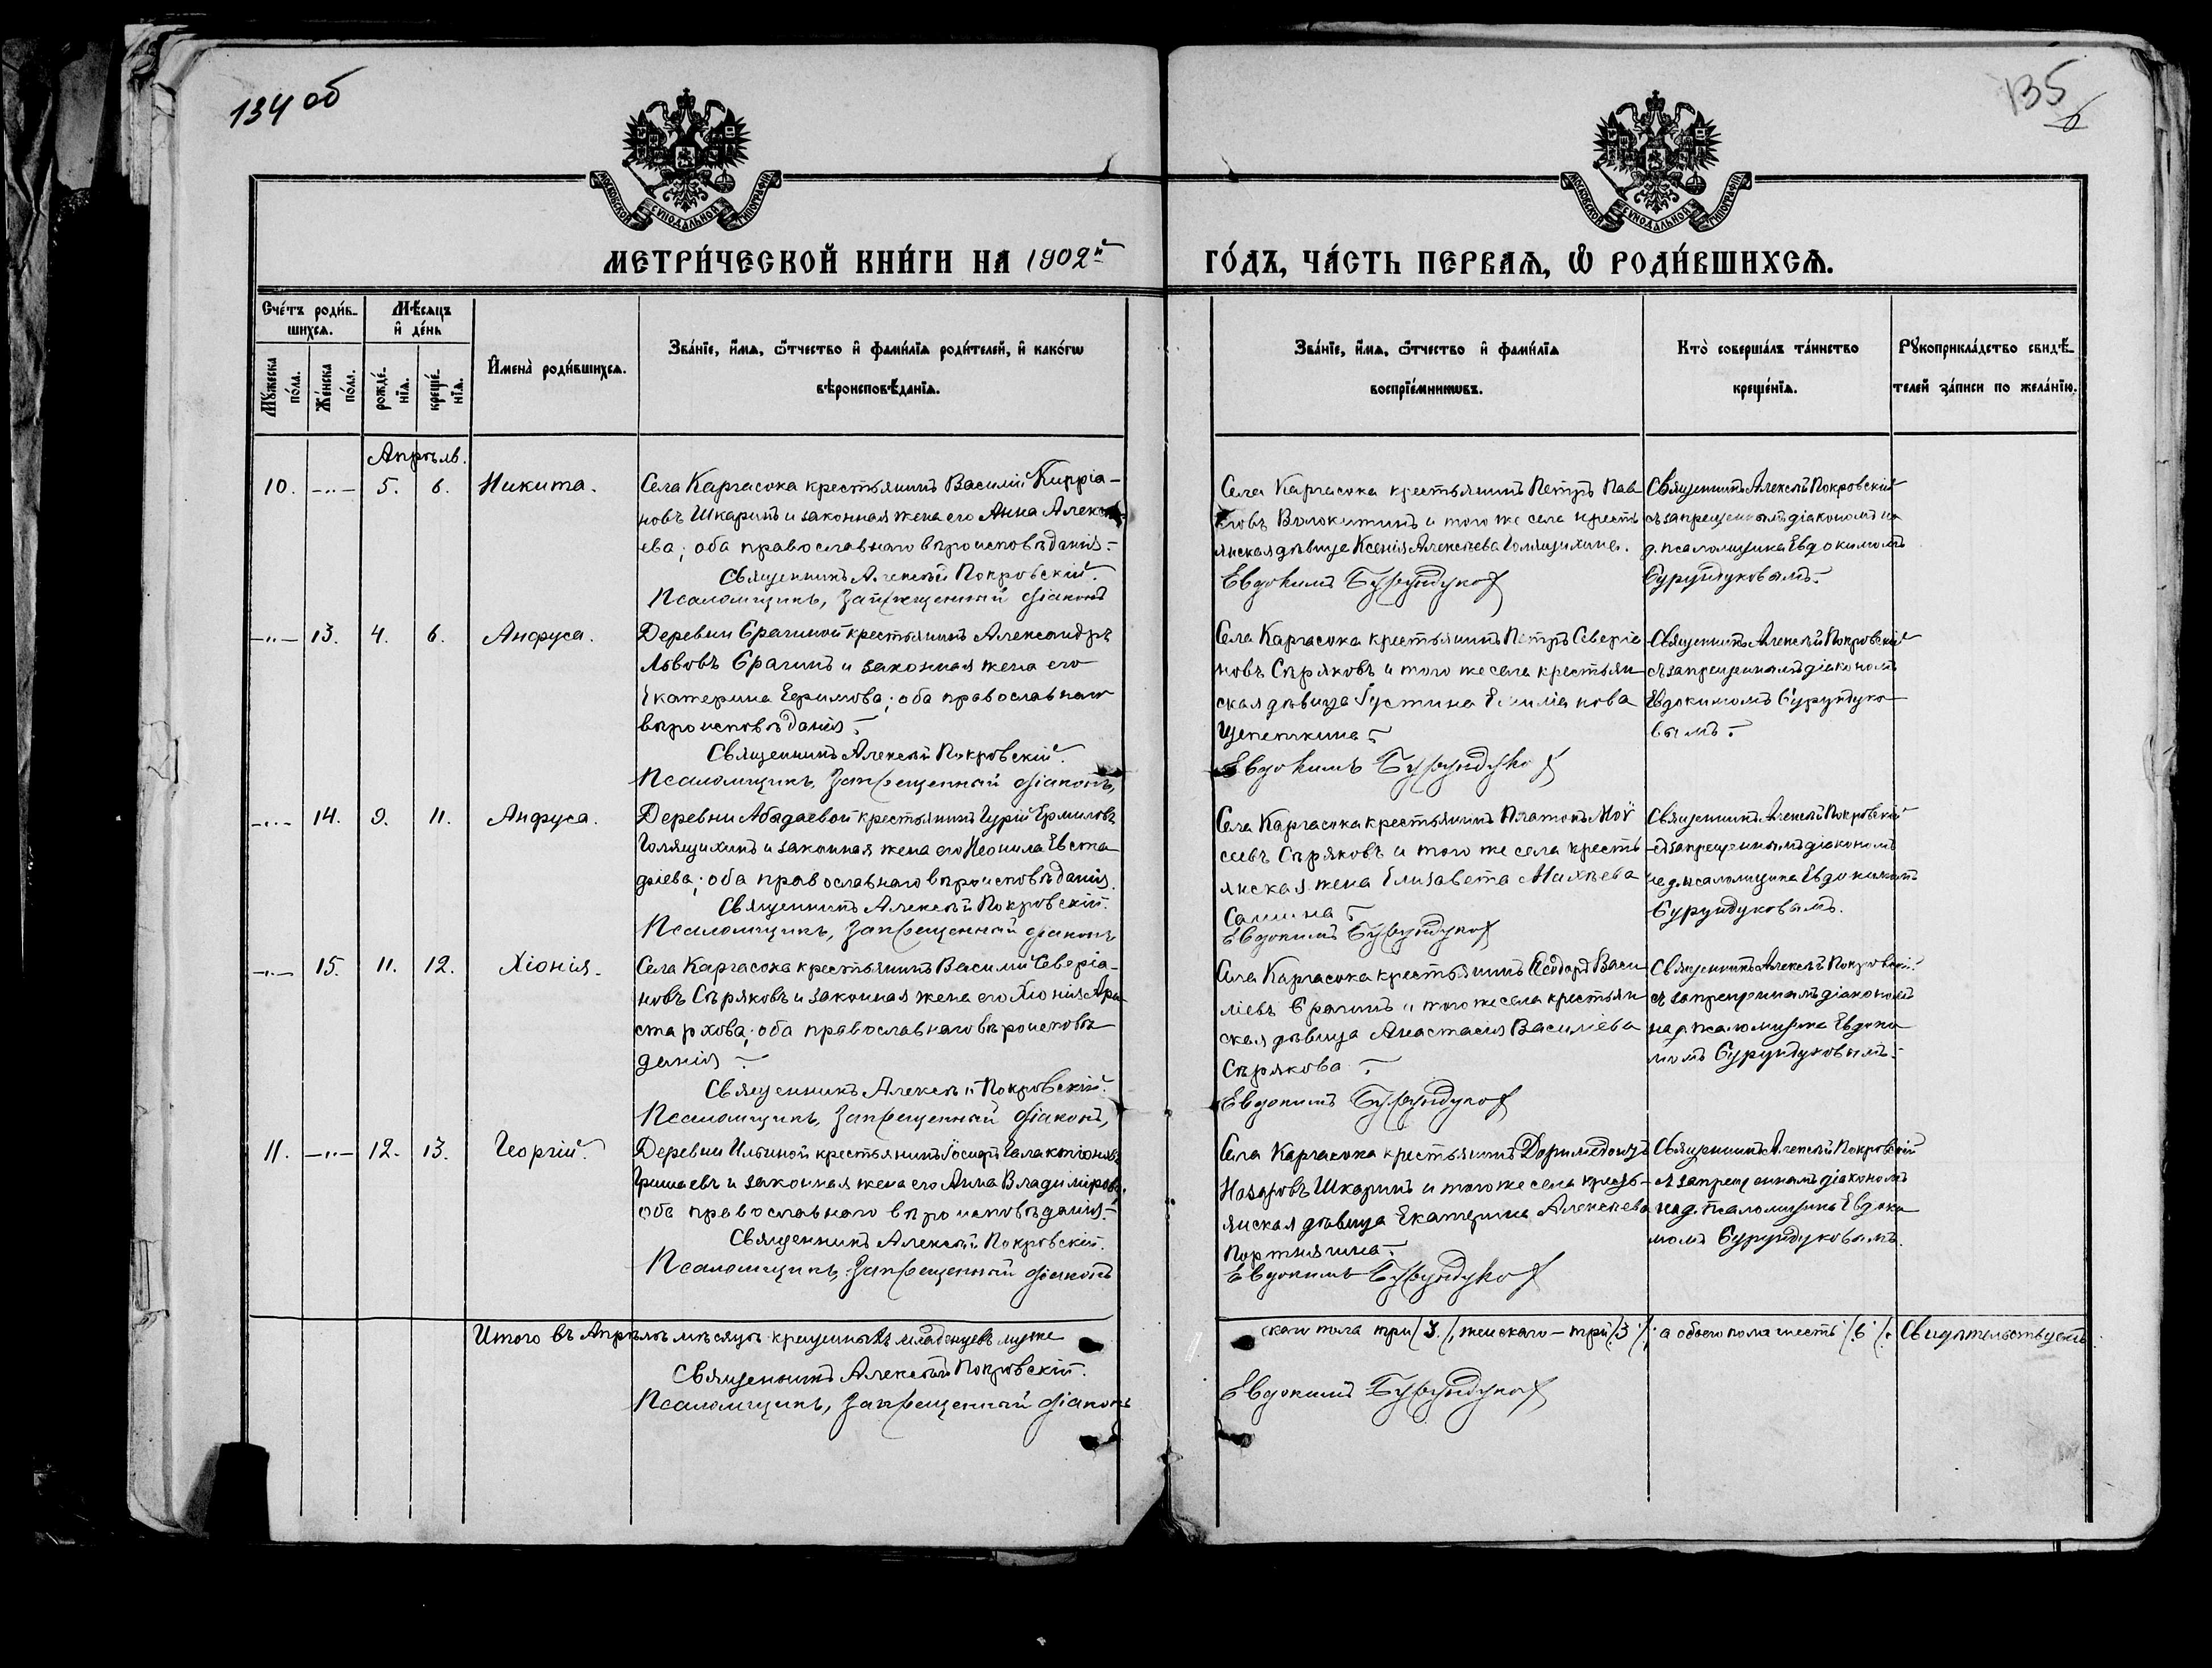 134 об
135
МОСКОВСКОЙ СѴНОДАЛЬНОЙ ТИПОГРАФІИ
МОСКОВСКОЙ СѴНОДАЛЬНОЙ ТИПОГРАФІИ
МЕТРИ́ЧЕСКОЙ КНИ́ГИ НА 1902й
ГО́ДЪ, ЧА́СТЬ ПЕРВАѦ, Ѽ РОДИ́ВШИХСѦ.
Сче́тъ роди́в-
шихсѧ.
Мѣ́сѧцъ
и҆ де́нь
Мꙋ́жеска
по́ла.
Же́нска
по́ла.
рожде́-
нїѧ.
креще́-
нїѧ.
И҆мена̀ роди́вшихсѧ.
Зва́нїе, и҆́мѧ, ѻ҆́тчество и҆ фами́лїѧ роди́телей, и҆ како́гѡ
вѣроисповѣ́данїѧ.
Зва́нїе, и҆́мѧ, ѻ҆́тчество и҆ фами́лїѧ
воспрїе́мникѡвъ.
Кто̀ соверша́лъ та́инство
креще́нїѧ.
Рꙋкоприкла́дство свидѣ́-
телей за́писи по жела́нїю.
Апрѣль.
10. -„- 5. 6. Никита.
Села Каргасока крестьянинъ Василій Кирріа-
новъ Шкаринъ и законная жена его Анна Алексѣ-
ева; оба православнаго вѣроисповѣданія.-
Священникъ Алексѣй Покровскій.
Псаломщикъ, запрещенный діаконъ
Села Каргасока крестьянинъ Петръ Пав
ловъ Волокитинъ и того же села кресть
янская дѣвица Ксенія Алексѣева Голящихина.
Евдокимъ Бурундуков
Священникъ Алексѣй Покровскій
съ запрещеннымъ діакономъ на
д. псаломщика Евдокимомъ
Бурундуковымъ.-
-„- 13. 4. 6. Анфуса.
Деревни Брагиной крестьянинъ Александръ
Львовъ Брагинъ и законная жена его
Екатерина Ефимова; оба православнаго
вѣроисповѣданія.-
Священникъ Алексѣй Покровскій.
Псаломщикъ, запрещенный діаконъ,
Села Каргасока крестьянинъ Петръ Северіа
новъ Сѣряковъ и того же села крестьян
ская дѣвица Іустина
Щепеткина.-
Евдокимъ Бурундуков
Священникъ Алексѣй Покровскій
съ запрещеннымъ діакономъ
Евдокимомъ Бурундуко
вымъ.-
-„- 14. 9. 11. Анфуса.
Деревни Абадаевой крестьянинъ Гурій Ермиловъ
Голящихинъ и законная жена его Неонила Евста
фіева; оба православнаго вѣроисповѣданія.
Священникъ Алексѣй Покровскій.
Псаломщикъ, запрещенный діаконъ
Села Каргасока крестьянинъ Платонъ Моѵ
сеевъ Сѣряковъ и того же села кресть
янская жена Елизавета
Санина.-
Евдокимъ Бурундуков
Священникъ Алексѣй Покровскій
съ запрещеннымъ діакономъ
на д. псаломщика Евдокимомъ
Бурундуковымъ.
-„- 15. 11. 12. Хіонія.
Села Каргасока крестьянинъ Василій Северіа-
новъ Сѣряковъ и законная жена его Хіонія Ари
стархова; оба православнаго вѣроисповѣ
данія.-
Священникъ Алексѣй Покровскій.
Псаломщикъ, запрещенный діаконъ,
Села Каргасока крестьянинъ Ѳеодоръ Васи
ліевъ Брагинъ и того же села крестьян
ская дѣвица Анастасія Василіева
Сѣрякова.-
Евдокимъ Бурундуков
Священникъ Алексѣй Покровскій
съ запрещеннымъ діакономъ
на д. псаломщика Евдоки
момъ Бурундуковымъ.-
11. -„- 12. 13. Георгій.
Деревни Ильиной крестьянинъ Іосифъ Галактіоновъ
Гришаевъ и законная жена его Анна Владимірова,
оба православнаго вѣроисповѣданія.-
Священникъ Алексѣй Покровскій.
Псаломщикъ, запрещенный діаконъ
Села Каргасока крестьянинъ Доримедонтъ
Назаровъ Шкаринъ и того же села кресть-
янская дѣвица Екатерина Алексѣева
Портнягина.-
Евдокимъ Бурундуков
Священникъ Алексѣй Покровскій
съ запрещеннымъ діакономъ
на д. псаломщика Евдоки
момъ Бурундуковымъ.
Итого въ Апрѣлѣ мѣсяцѣ крещенныхъ младенцевъ муже
скаго пола три /3/, женскаго - три /3/, а обоего пола шесть /6/. Свидѣтельствуетъ:
Священникъ Алексѣй Покровскій.
Псаломщикъ, запрещенный діаконъ
Евдокимъ Бурундуков